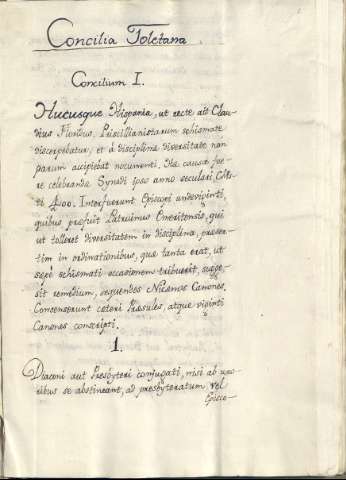 Concilia Toletana
Concilium I.
Hucusque Hispania, ut recte ait Clau-
dius Floribus, Priscillianistarum schismate
discerpebatur, et à disciplina diversitate non
parum accipiebat nocumenti. Hæ causæ fue-
re celebranda Synodi ipso anno seculari
400. Interfuerunt Episcopi undeviginti,
quibus præfuit Patruinus Emeritensis, qui
ut tolleret diversitatem in disciplina, præser-
tim in ordinationibus, quæ tanta erat, ut
sepè schismati occasionem tribuerit, sugge-
sit remedium, sequendos Nicænos Canones.
Consenserunt cæteri Præsules, atque viginti
Canones conscripti.
1.
Diaconi aut Presbyteri conjugati, nisi ab uxo-
ribus se abstineant, ad presbyteratum vel
Episco-